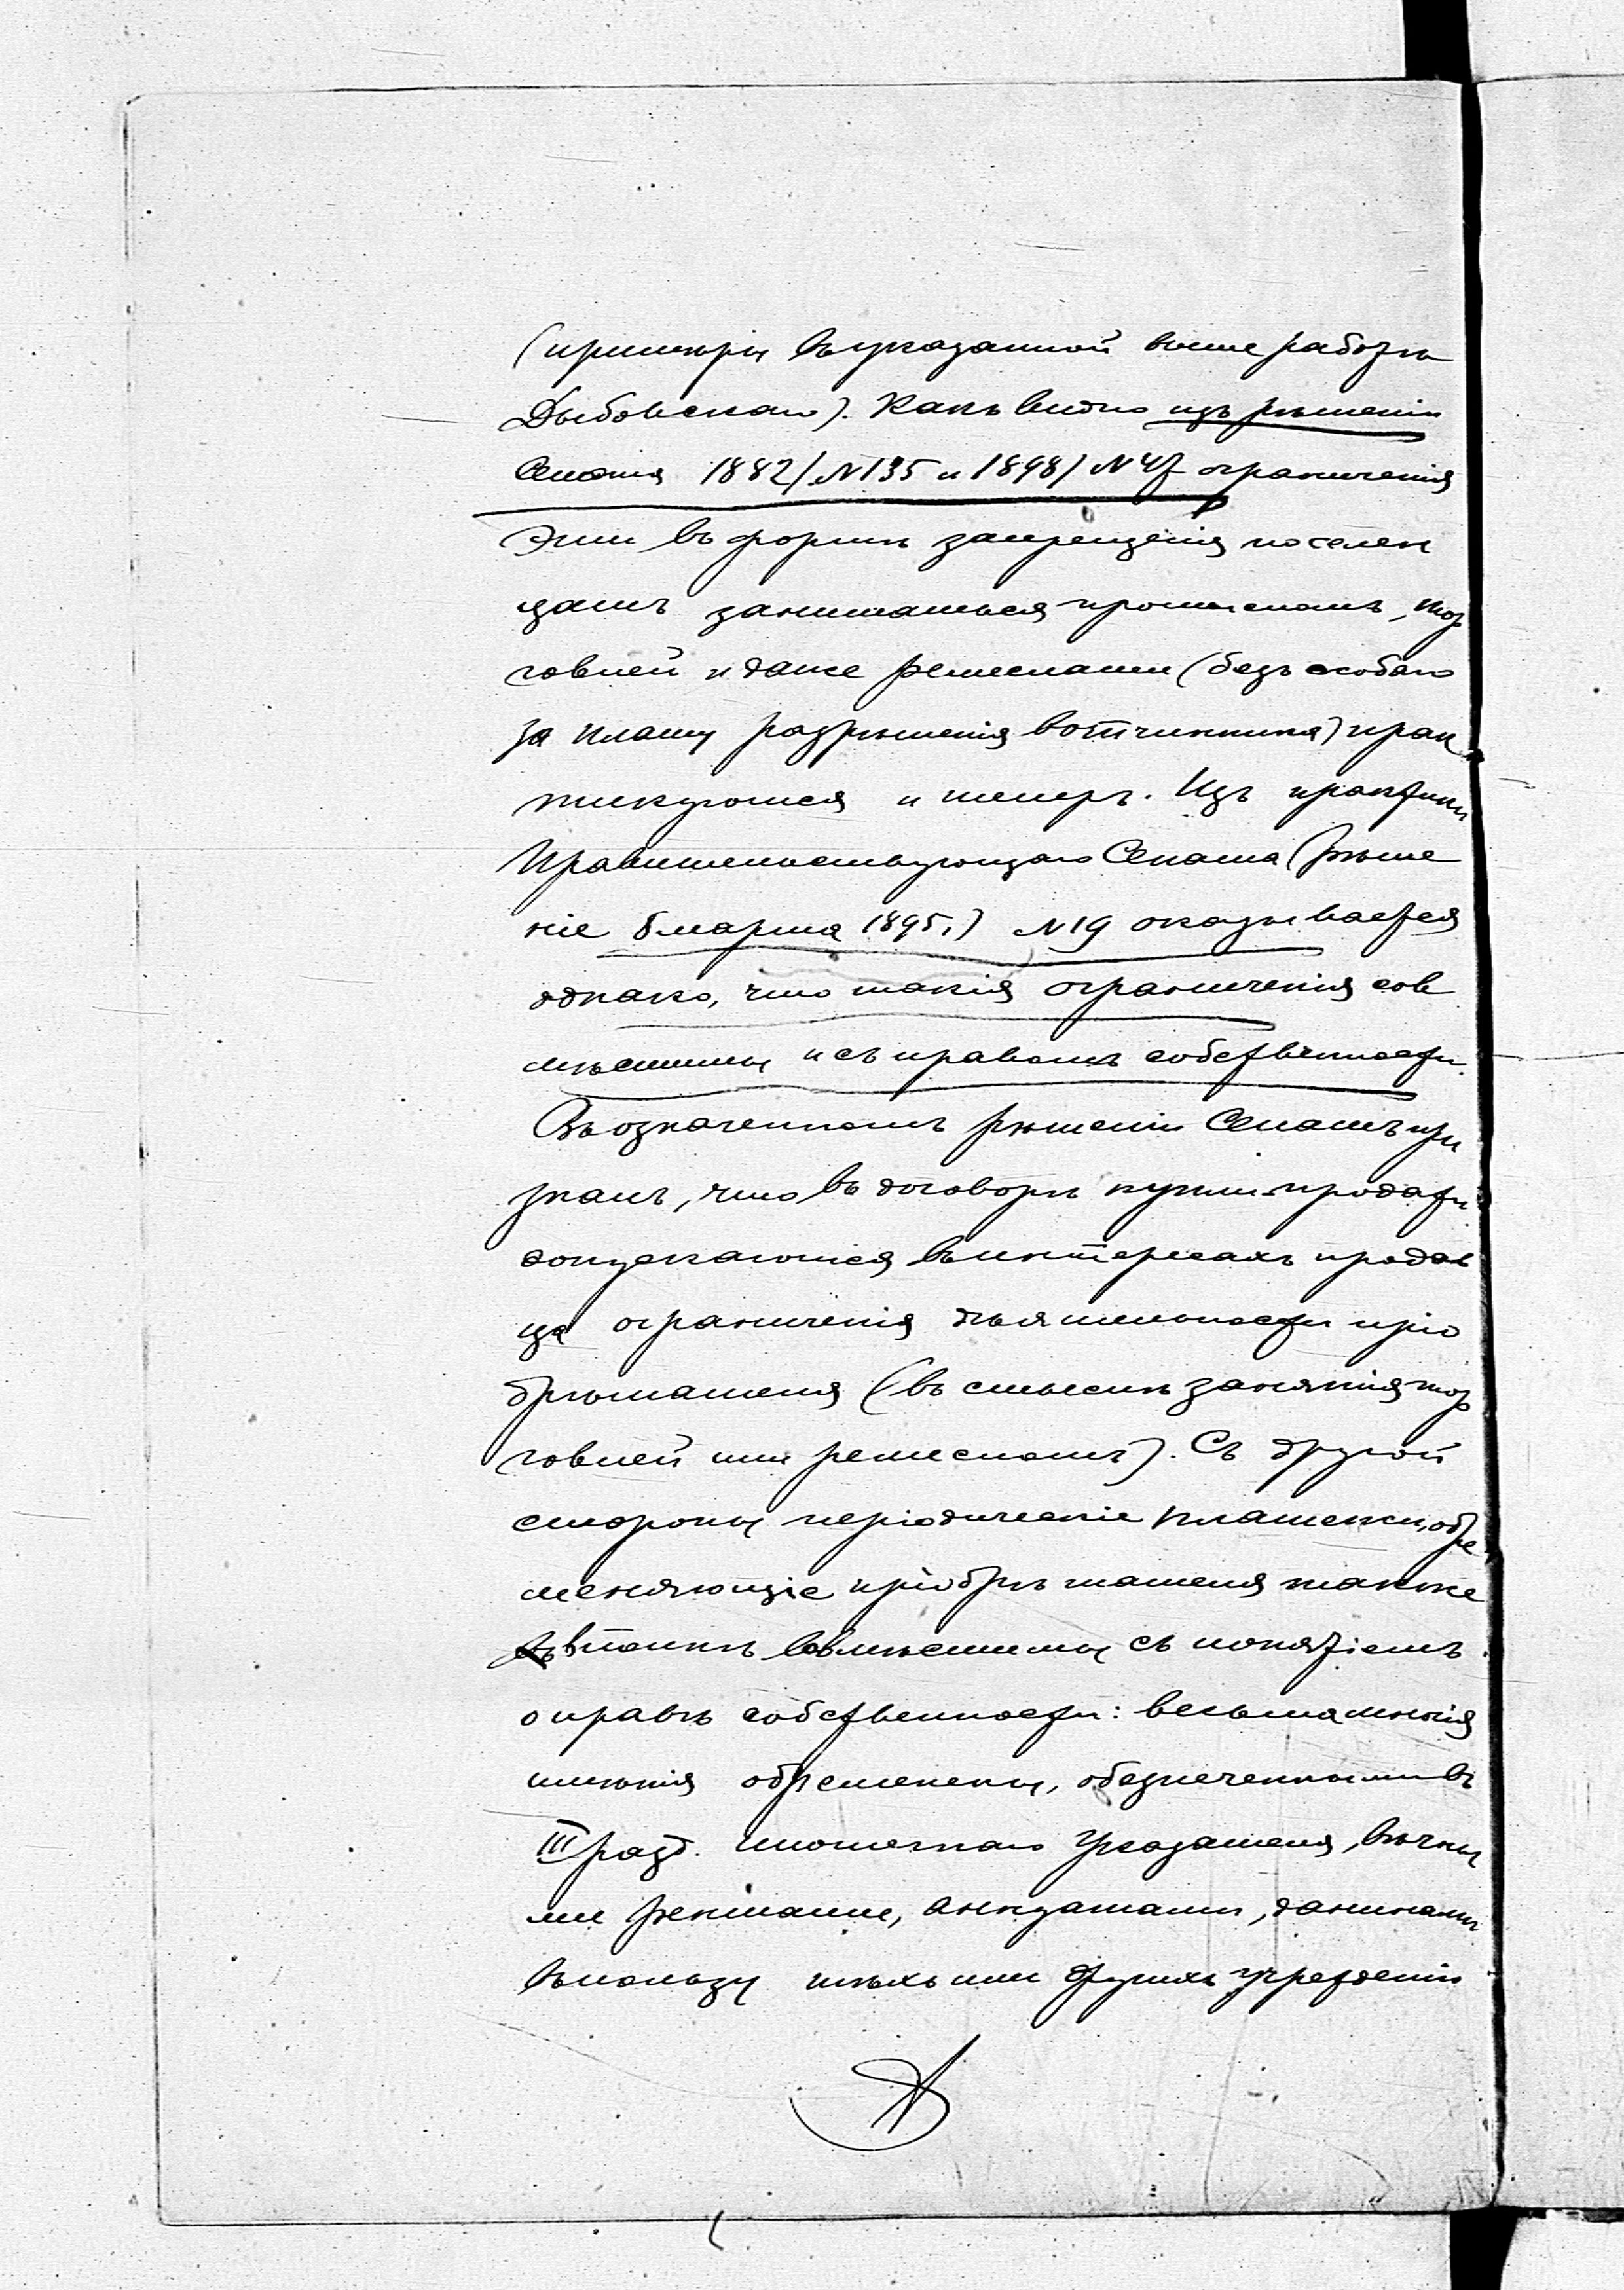 (примѣры въ указанной выше работѣ
Дыбовскаго). Какъ видно изъ рѣшенiи
Сената 1882/ N135 и 1898/ N47 ограниченiя
Эти въ формѣ запрещенiя поселен
цамъ заниматься промысломъ, тор
говлей и даже ремеслами (безъ особаго
за плату разрѣшенiя вотчинника) прак
тикуются и теперь. Изъ практики
Правительствующаго Сената (рѣше
нiе 8 марта 1895.) N19 оказывается
однако, что такiя ограниченiя сов
мѣстимы и съ правомъ собственности.
Въ означенномъ рѣшенiи Сенатъ при
зналъ, что въ договорѣ купли-продажи
допускаются въ интересахъ продав
ца ограниченiя дѣятельности прiо
брѣтателя (въ смыслѣ занятiя тор
говлей или ремесломъ). Съ другой
стороны перiодическiе платежи, обре
меняющiе прiобрѣтателя также
вполнѣ совмѣстимы съ понятiемъ
о правѣ собственности: весьма многiя
имѣнiя обременены, обезпеченными въ
III разд. ипотечнаго указателя, вѣчны
ми рентами, аннуатами, данинами
въ пользу тѣхъ или другихъ учрежденiи